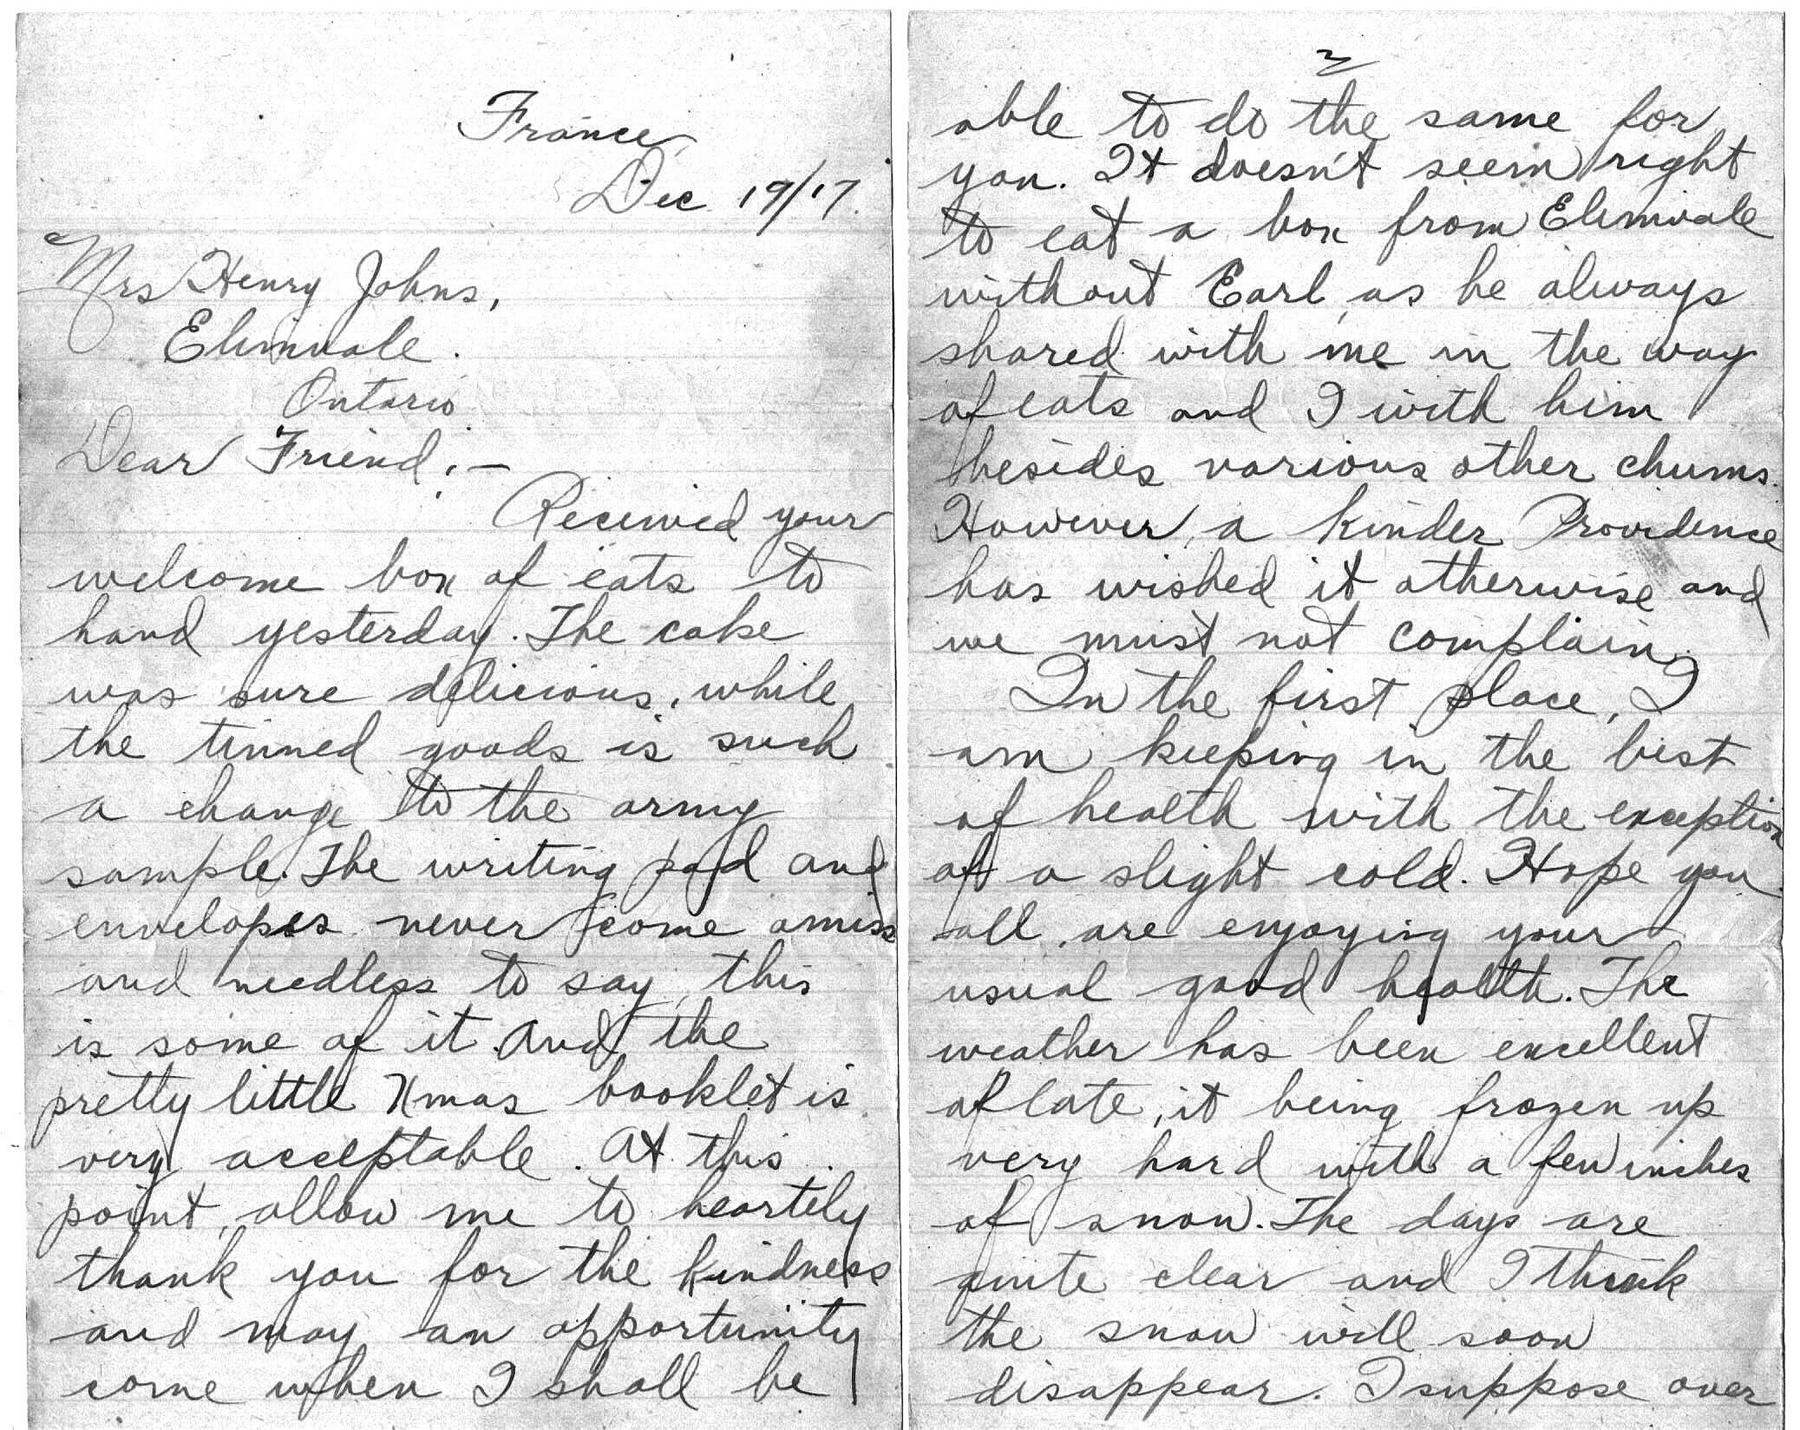 France
Dec 19/17.
Mrs Henry Johns,
Elimvale.
Ontario
Dear Friend:—
Received your
welcome box of eats to
hand yesterday. The cake
was sure delicious, while
the tinned goods is such
a change to the army
sample. The writing pad and
envelopes never come amiss
and needless to say, this
is some of it. And the
pretty little Xmas booklet is
very acceptable. At this
point, allow me to heartely
thank you for the kindness
and may an opportunity
come when I shall be
2
able to do the same for
you. It doesn't seem right
to eat a box from Elimvale
without Earl, as he always
shared with me in the way
of eats and I with him
besides various other chums.
However, a kinder Providence
has wished it otherwise and
we must not complain.
In the first place, I
am keeping in the best
of health with the exception
of a slight cold. Hope you
all are enjoying your
usual good health. The
weather has been excellent
of late, it being frozen up
very hard with a few inches
of snow. The days are
quite clear and I think
the snow will soon
disappear. I suppose over